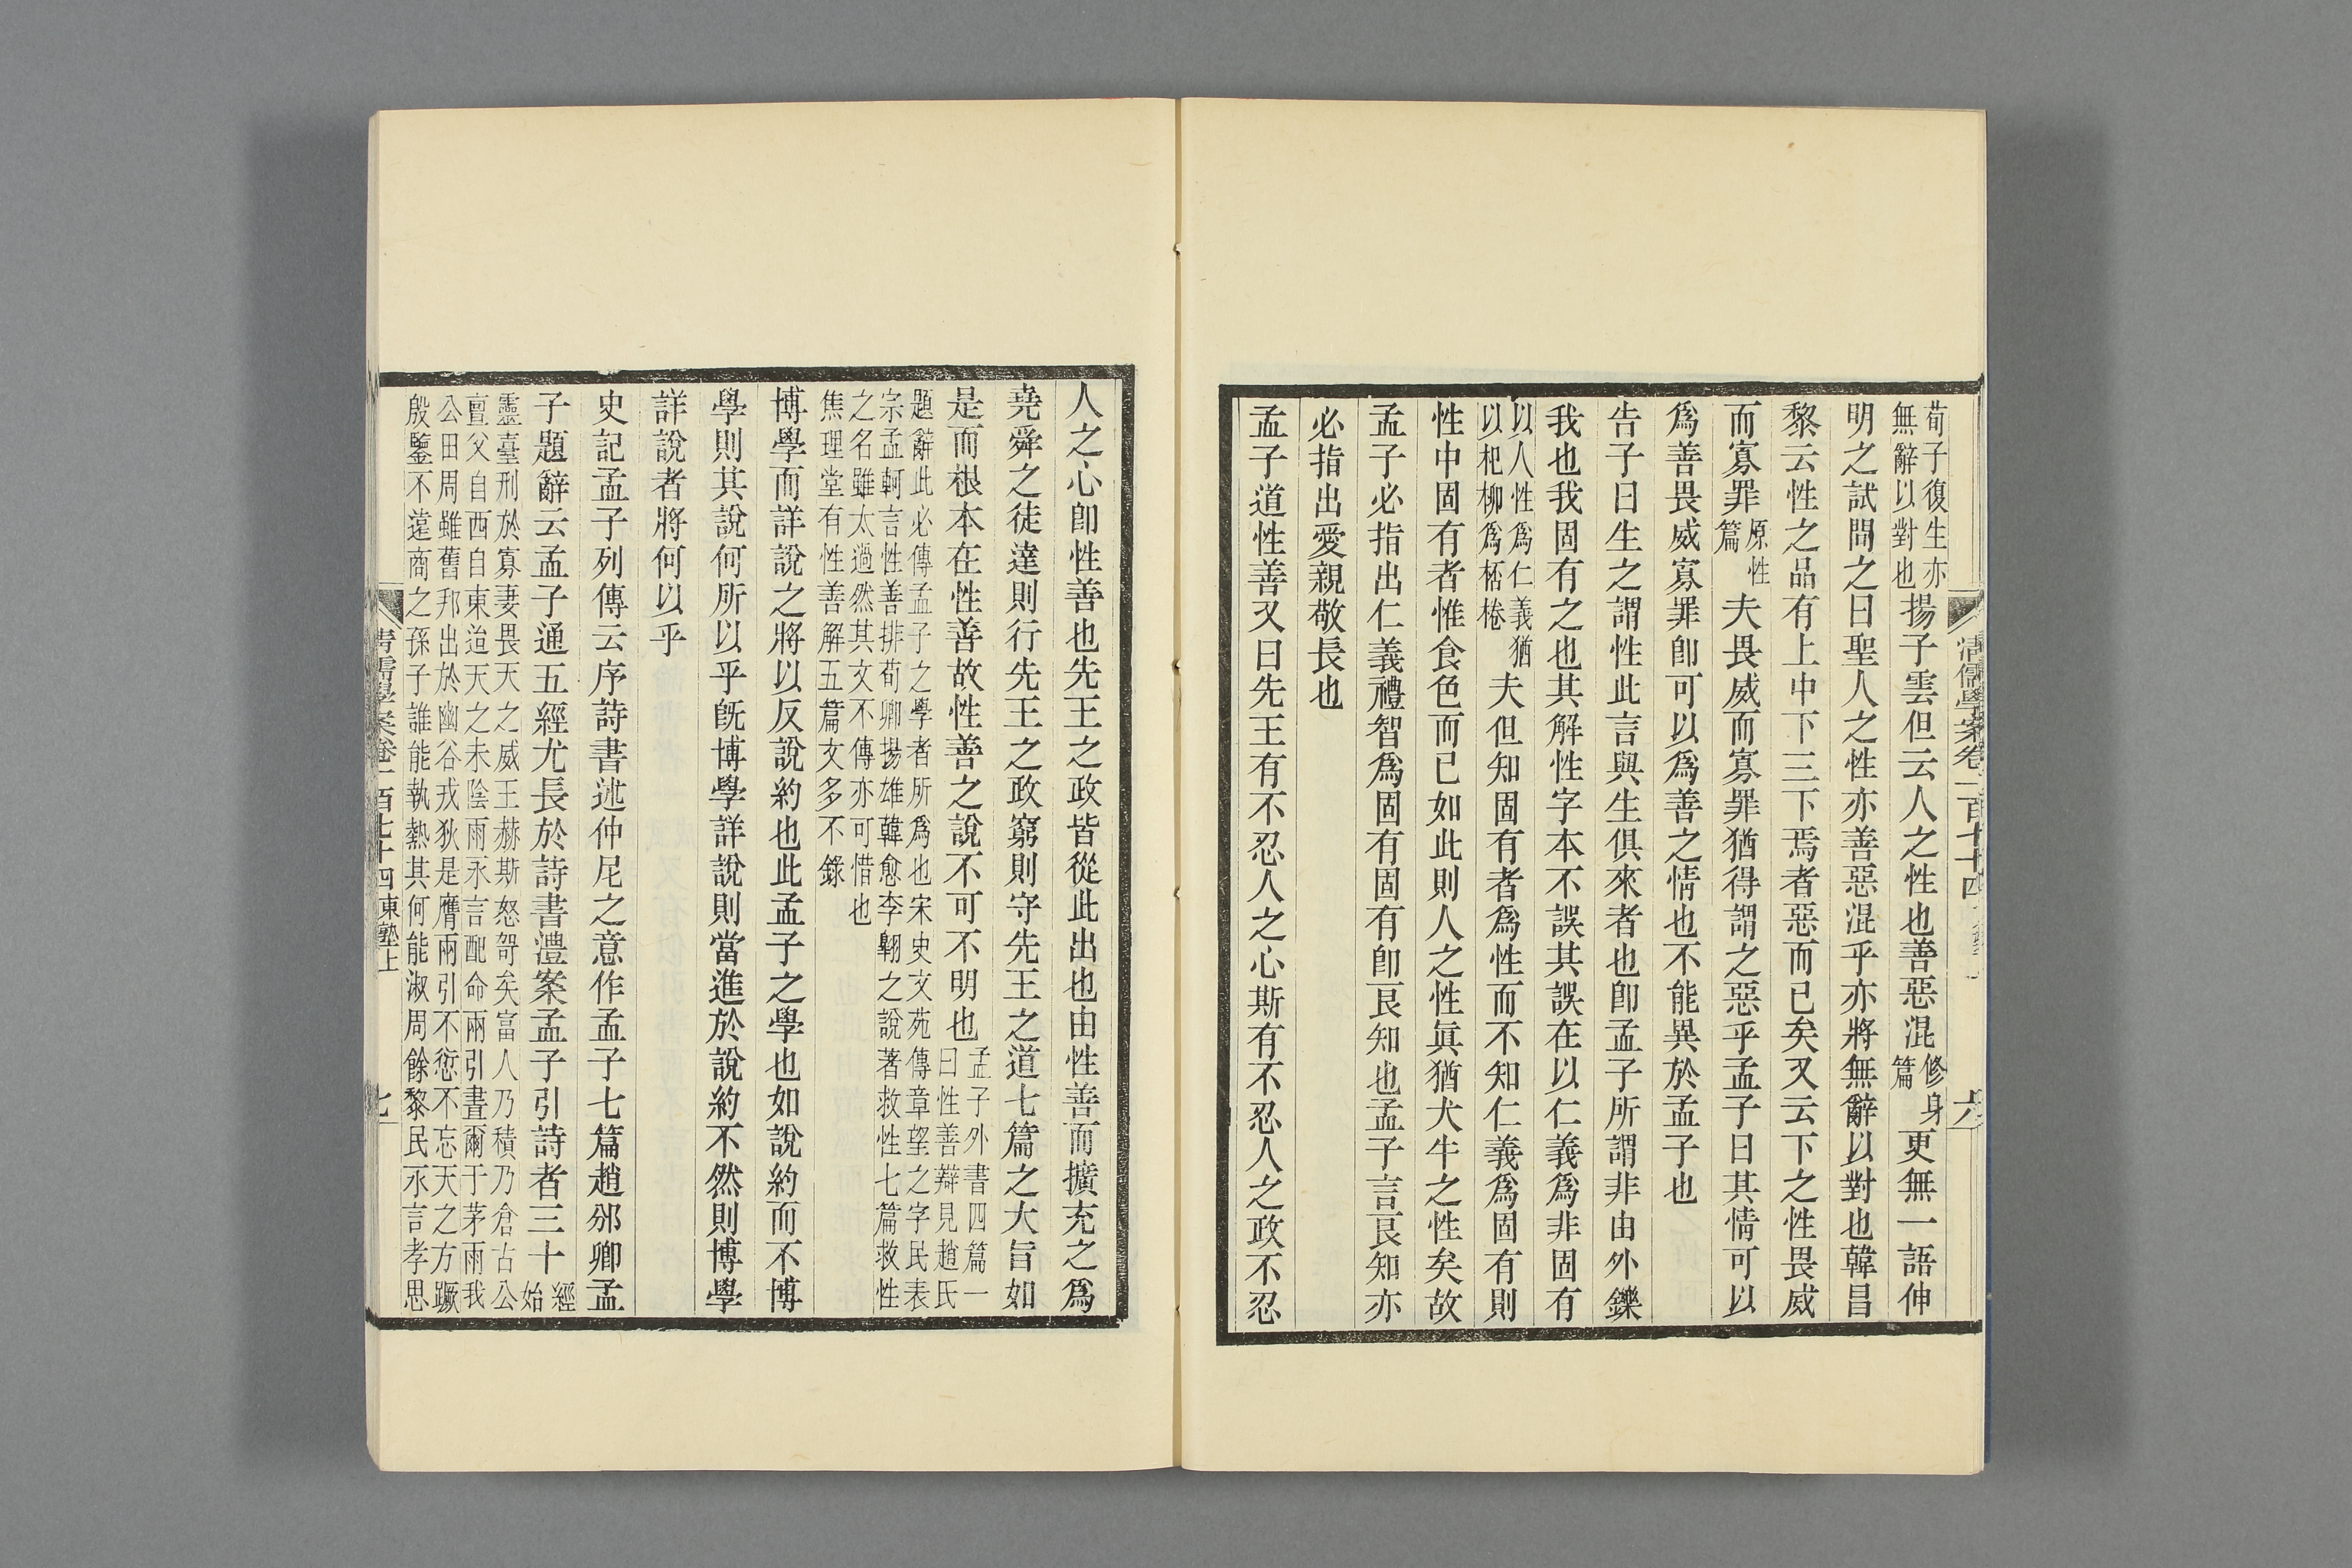 荀子復生亦
無辭以對也
揚子雲但云人之性也善惡混
修身
篇
更無一語伸
明之試問之曰聖人之性亦善惡混乎亦將無辭以對也韓昌
黎云性之品有上中下三下焉者惡而已矣又云下之性畏威
而寡罪
原性
篇
夫畏威而寡罪猶得謂之惡乎孟子曰其情可以
爲善畏威寡罪卽可以爲善之情也不能異於孟子也
告子曰生之謂性此言與生俱來者也卽孟子所謂非由外鑠
我也我固有之也其解性字本不誤其誤在以仁義爲非固有
以人性爲仁義猶
以杞柳爲桮棬
夫但知固有者爲性而不知仁義爲固有則
性中固有者惟食色而已如此則人之性眞猶犬牛之性矣故
孟子必指出仁義禮智爲固有固有卽良知也孟子言良知亦
必指出愛親敬長也
孟子道性善又曰先王有不忍人之心斯有不忍人之政不忍
清儒學案卷一百七十四
六
人之心卽性善也先王之政皆從此出也由性善而擴充之爲
堯舜之徒達則行先王之政窮則守先王之道七篇之大旨如
是而根本在性善故性善之說不可不明也
孟子外書四篇一
曰性善辯見趙氏
題辭此必傳孟子之學者所爲也宋史文苑傳章望之字民表
宗孟軻言性善排荀卿揚雄韓愈李翺之說著救性七篇救性
之名雖太過然其文不傳亦可惜也
焦理堂有性善解五篇文多不錄
博學而詳說之將以反說約也此孟子之學也如說約而不博
學則其說何所以乎旣博學詳說則當進於說約不然則博學
詳說者將何以乎
史記孟子列傳云序詩書述仲尼之意作孟子七篇趙邠卿孟
子題辭云孟子通五經尤長於詩書澧案孟子引詩者三十
經
始
靈臺刑於寡妻畏天之威王赫斯怒哿矣富人乃積乃倉古公
亶父自西自東迨天之未陰雨永言配命兩引晝爾于茅雨我
公田周雖舊邦出於幽谷戎狄是膺兩引不愆不忘天之方蹶
殷鑒不遠商之孫子誰能執熱其何能淑周餘黎民永言孝思
清儒學案卷一百七十四東塾上
七